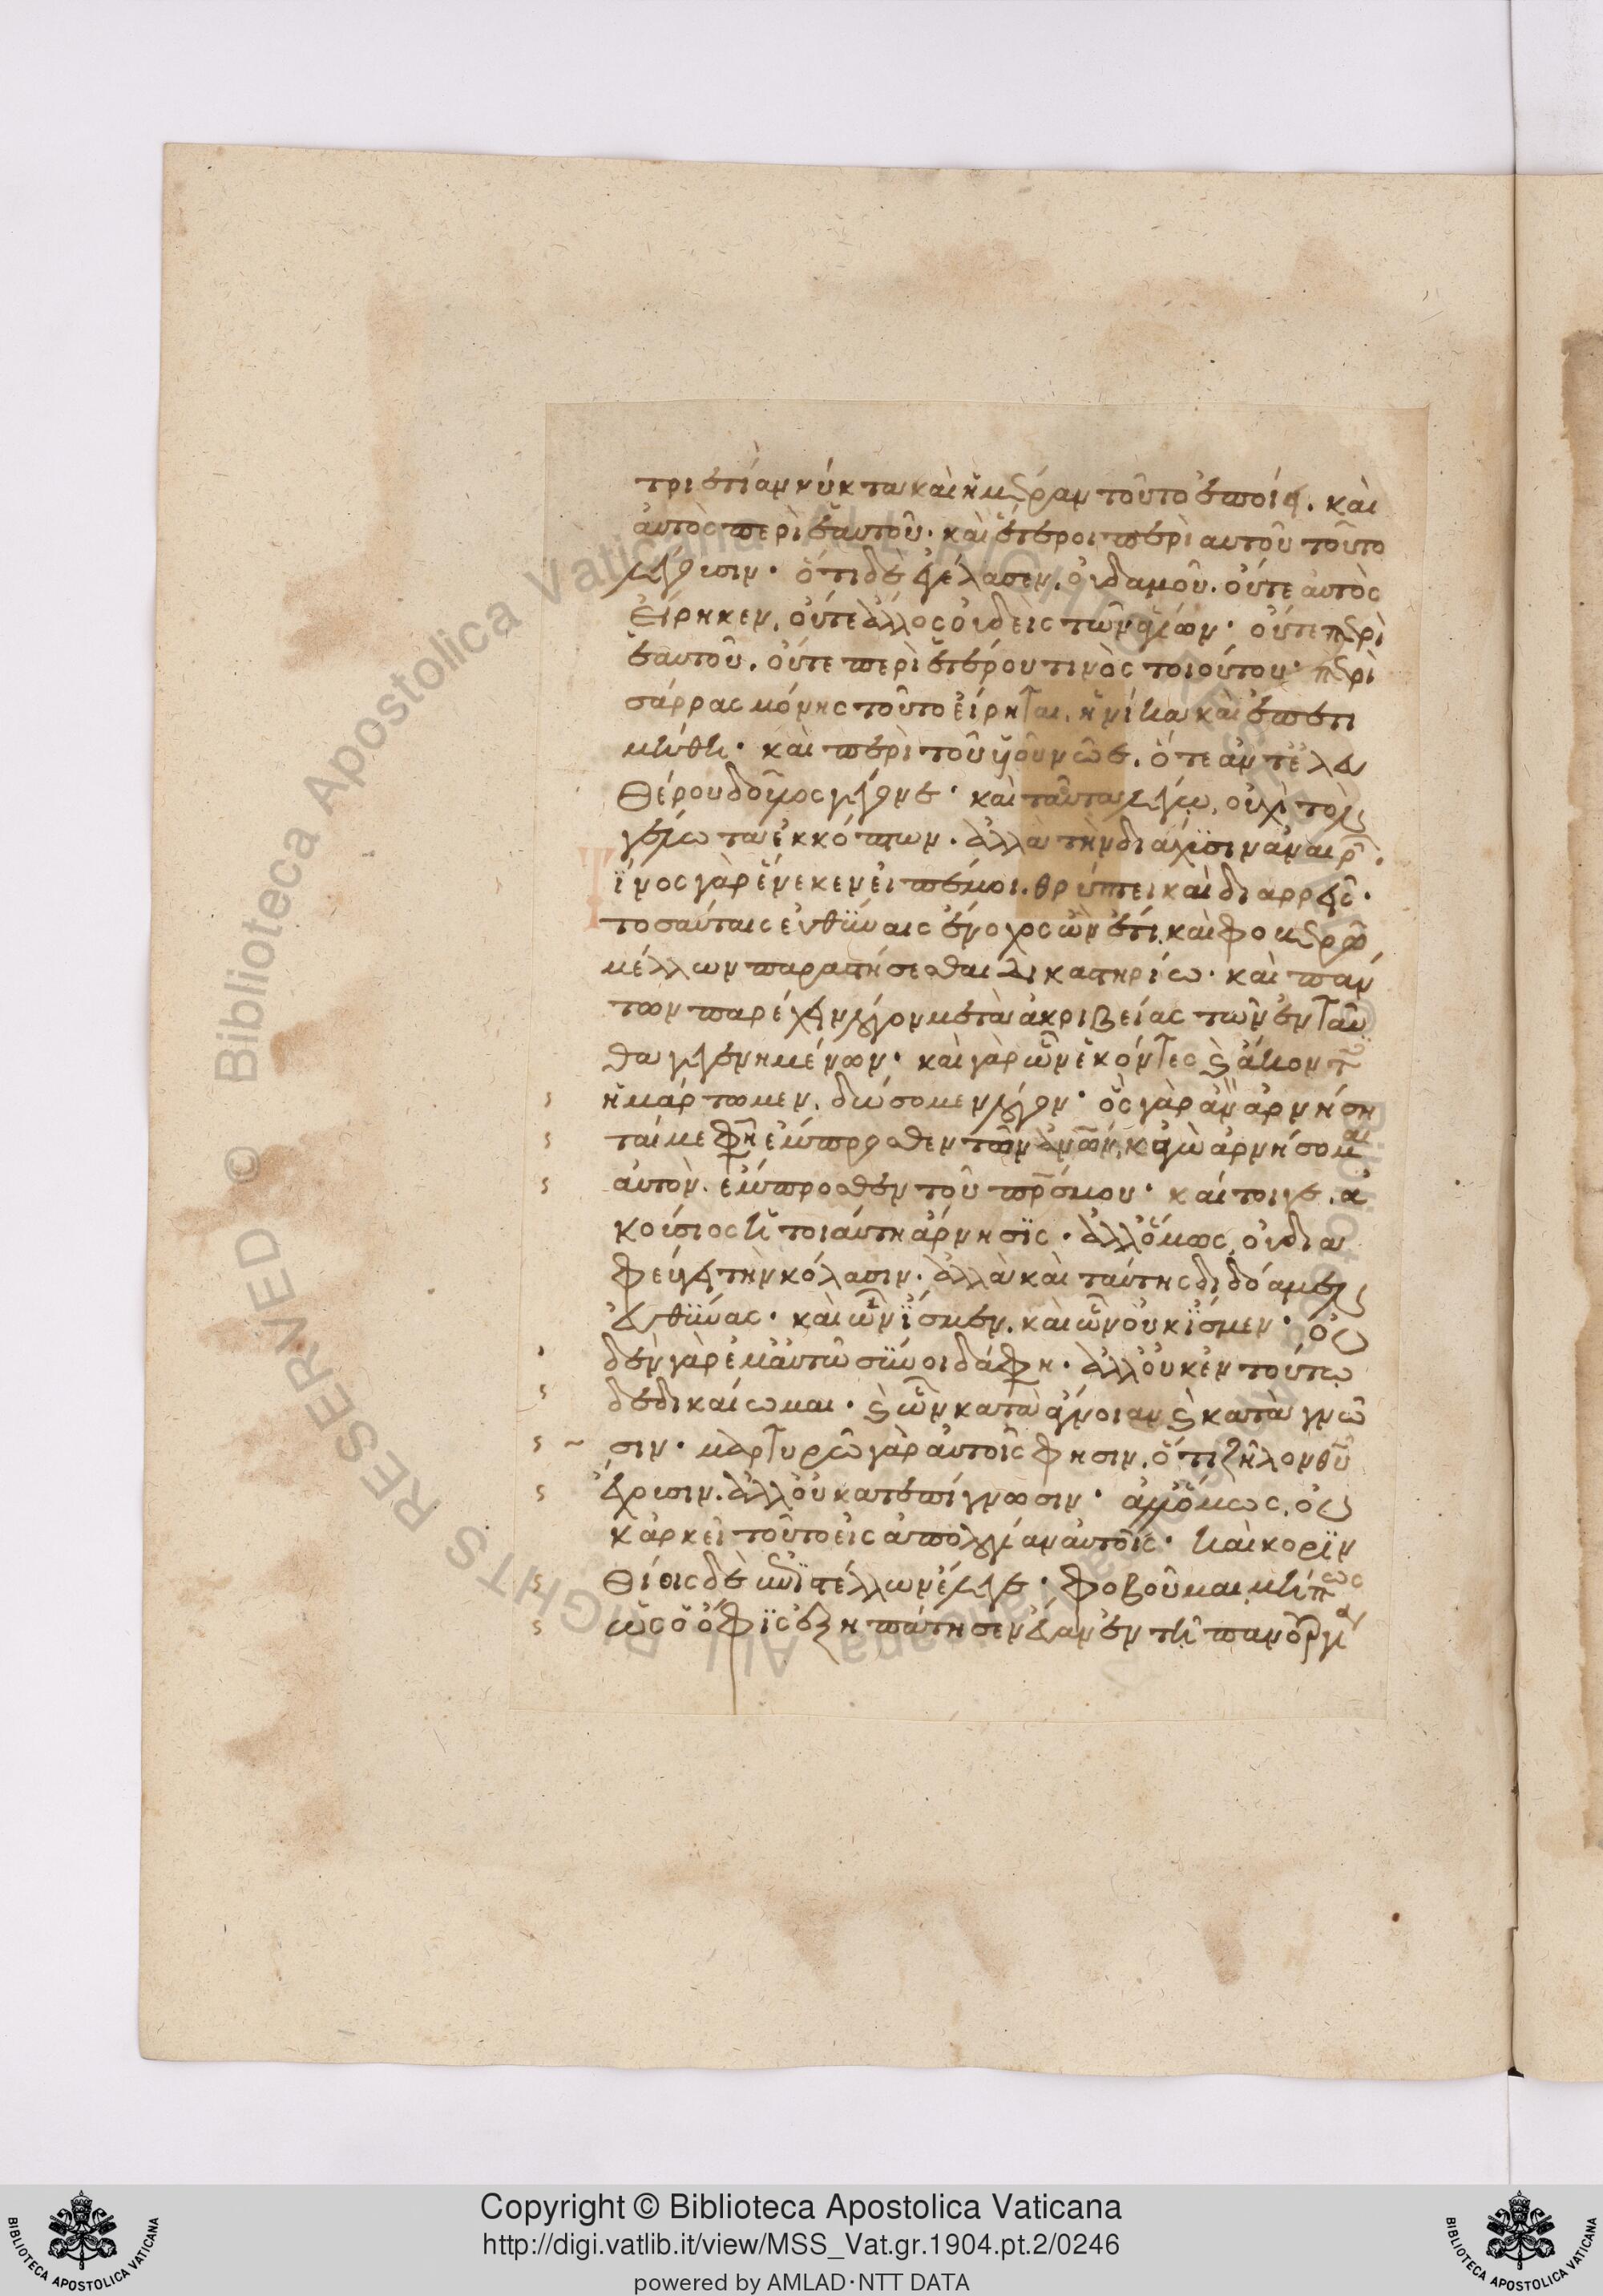 τριετίαν νύκτα καὶ ἡμέραν τοῦτο ἐποίει. καὶ
αὐτὸς περὶ ἑαυτοῦ· καὶ ἕτεροι περὶ αὐτοῦ τοῦτο
λέγουσιν· ὅτι δὲ ἐγέλασεν, οὐδαμοῦ. οὔτε αὐτὸς
εἴρηκεν, οὔτε ἄλλος οὐδεὶς τῶν ἁγίων· οὔτε περὶ
ἑαυτοῦ. οὔτε περὶ ἑτέρου τινὸς τοιούτου· περὶ
σάρρας μόνης τοῦτο εἴρηται, ἡνίκα καὶ ἐπετι
μήθη· καὶ περὶ τοῦ υἱοῦ νῶε, ὅτε ἀντ ἐλευ
θέρου δοῦλος γέγονε· καὶ ταῦτα λέγω, οὐχὶ τὸν
γέλωτα ἐκκόπτων. ἀλλὰ τὴν διάχυσιν ἀναιρῶν·
Τίνος γὰρ ἕνεκεν εἰπέ μοι. θρύπτει καὶ διαρρεῖς·
τοσαύταις εὐθύναις ἔνοχος ὢν ἔτι. καὶ φοβερῷ
μέλλων παραστήσεσθαι δικαστηρίω· καὶ πάν
των παρέχειν λόγον μετὰ ἀκριβείας τῶν ἐνταῦ
θα γεγενημένων· καὶ γὰρ ὧν ἑκόντες καὶ ἄκοντες
ἡμάρτομεν, δώσομεν λόγον· ὃς γὰρ ἂν ἀρνήση
ταί με φησὶ ἔμπροσθεν τῶν ἀνθρώπων, κἀγὼ ἀρνήσομαι
αὐτὸν. ἔμπροσθεν τοῦ πατρός μου· καίτοιγε, ἀ
κούσιος ἡ τοιαύτη ἄρνησις· ἀλλ ὅμως, οὐ δια
φεύγει τὴν κόλασιν· ἀλλὰ καὶ ταύτης δίδομεν
εὐθύνας· καὶ ὧν ἴσμεν. καὶ ὧν οὐκ ἴσμεν· οὐ
δὲν γὰρ ἐμαυτῶ σύνοιδά φησι· ἀλλ οὐκ ἐν τούτω
δεδικαίωμαι· καὶ ὧν κατὰ ἄγνοιαν καὶ κατὰ γνῶ
σιν· μαρτυρῶ γὰρ αὐτοῖς φησιν, ὅτι ζῆλον θεοῦ
ἔχουσιν. ἀλλ οὐ κατ ἐπίγνωσιν· ἀλλ ὅμως, οὐ
κ ἀρκεῖ τοῦτο εἰς ἀπολογίαν αὐτοῖς· καὶ κοριν
θίοις δὲ ἐπιστέλλων ἔλεγε· φοβοῦμαι μήπως
ὡς ὁ ὄφις ἐξηπάτησεν εὔαν ἐν τῆ πανουργία
Copyright © Biblioteca Apostolica Vaticana
http://digi.vatlib.it/view/MSS_Vat.gr.1904.pt.2/0246
powered by AMLAD·NTT DATA